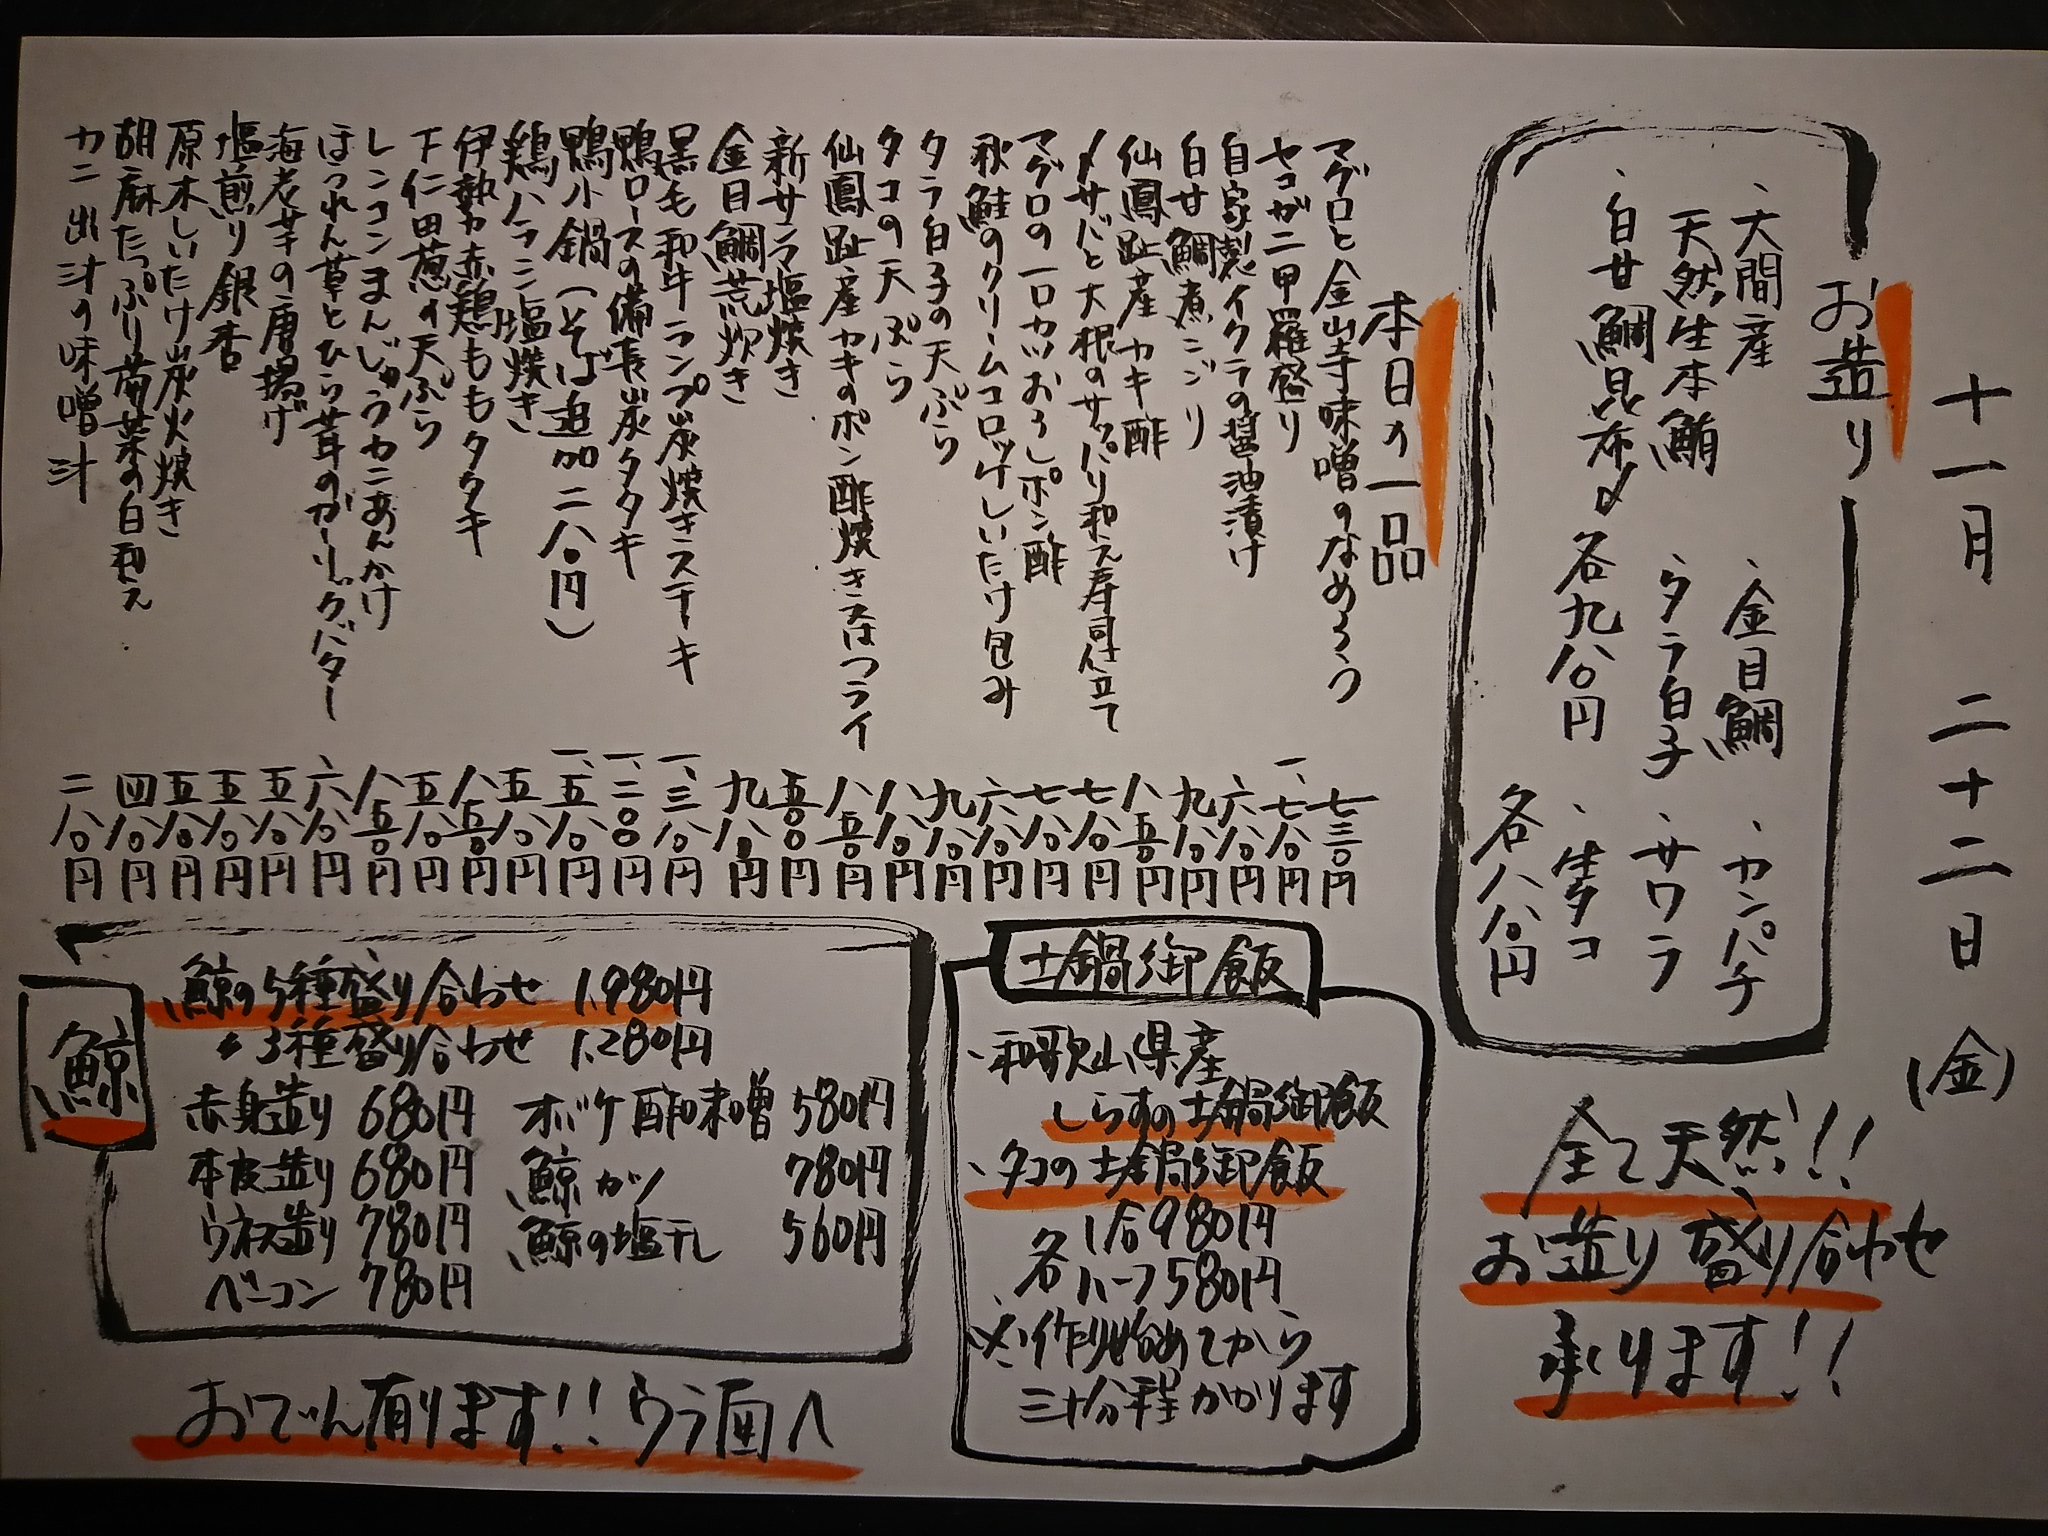 十一月 二十二日 (金)
お造り
・大間産
天然生本鮪
・白甘鯛昆布〆
各九八〇円
・金目鯛
・タラ白子
・カンパチ
・サワラ
・生タコ
各八八〇円
全て天然!!
お造り盛り合わせ
承ります!!
本日の一品
マグロと金山寺味噌のなめろう 七三〇円
セコガニ甲羅盛り 一、七八〇円
自家製イクラの醤油漬け 六八〇円
白甘鯛煮こごり 九八〇円
仙鳳趾産カキ酢 八五〇円
〆サバと大根のサッパリ和え寿司仕立て 七八〇円
マグロの一口カツおろしポン酢 七八〇円
秋鮭のクリームコロッケしいたけ包み 六八〇円
タラ白子の天ぷら 九八〇円
タコの天ぷら 八八〇円
仙鳳趾産カキのポン酢焼き又はフライ 八五〇円
新サンマ塩焼き 五〇〇円
金目鯛荒炊き 九八〇円
黒毛和牛ランプ炭焼きステーキ 一、三八〇円
鴨ロースの備長炭タタキ 一、二〇〇円
鴨小鍋(そば追加二八〇円) 一、五八〇円
鶏ハラミ塩焼き 五八〇円
伊勢赤鶏ももタタキ 八五〇円
下仁田葱の天ぷら 五八〇円
レンコンまんじゅうカニあんかけ 八五〇円
ほうれん草とひら茸のガーリックバター 六八〇円
海老芋の唐揚げ 五八〇円
塩煎り銀杏 五八〇円
原木しいたけ炭火焼き 五八〇円
胡麻たっぷり菊菜の白和え 四八〇円
カニ出汁の味噌汁 二八〇円
土鍋御飯
・和歌山県産
しらすの土鍋御飯
・タコの土鍋御飯
各 1合980円
ハーフ580円
※作り始めてから
三十分程かかります
鯨
鯨の5種盛り合わせ 1,980円
〃3種盛り合わせ 1,280円
赤身造り 680円
本皮造り 680円
ウネス造り 780円
ベーコン 780円
オバケ酢味噌 580円
鯨カツ 780円
鯨の塩干し 560円
おでん有ります!!ウラ面へ